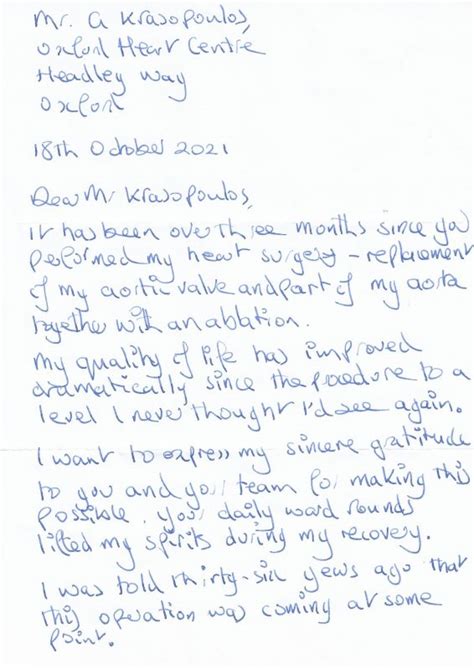 Mr. G Krasopoulos,
Oxford Heart Centre
Headley Way
Oxford
18th October 2021
Dear Mr Krasopoulos,
It has been over three months since you
performed my heart surgery – replacement
of my aortic valve and part of my aorta
together with an ablation.
My quality of life has improved
dramatically since the procedure to a
level I never thought I'd see again.
I want to express my sincere gratitude
to you and your team for making this
possible. Your daily ward rounds
lifted my spirits during my recovery.
I was told thirty-six years ago that
this operation was coming at some
point.